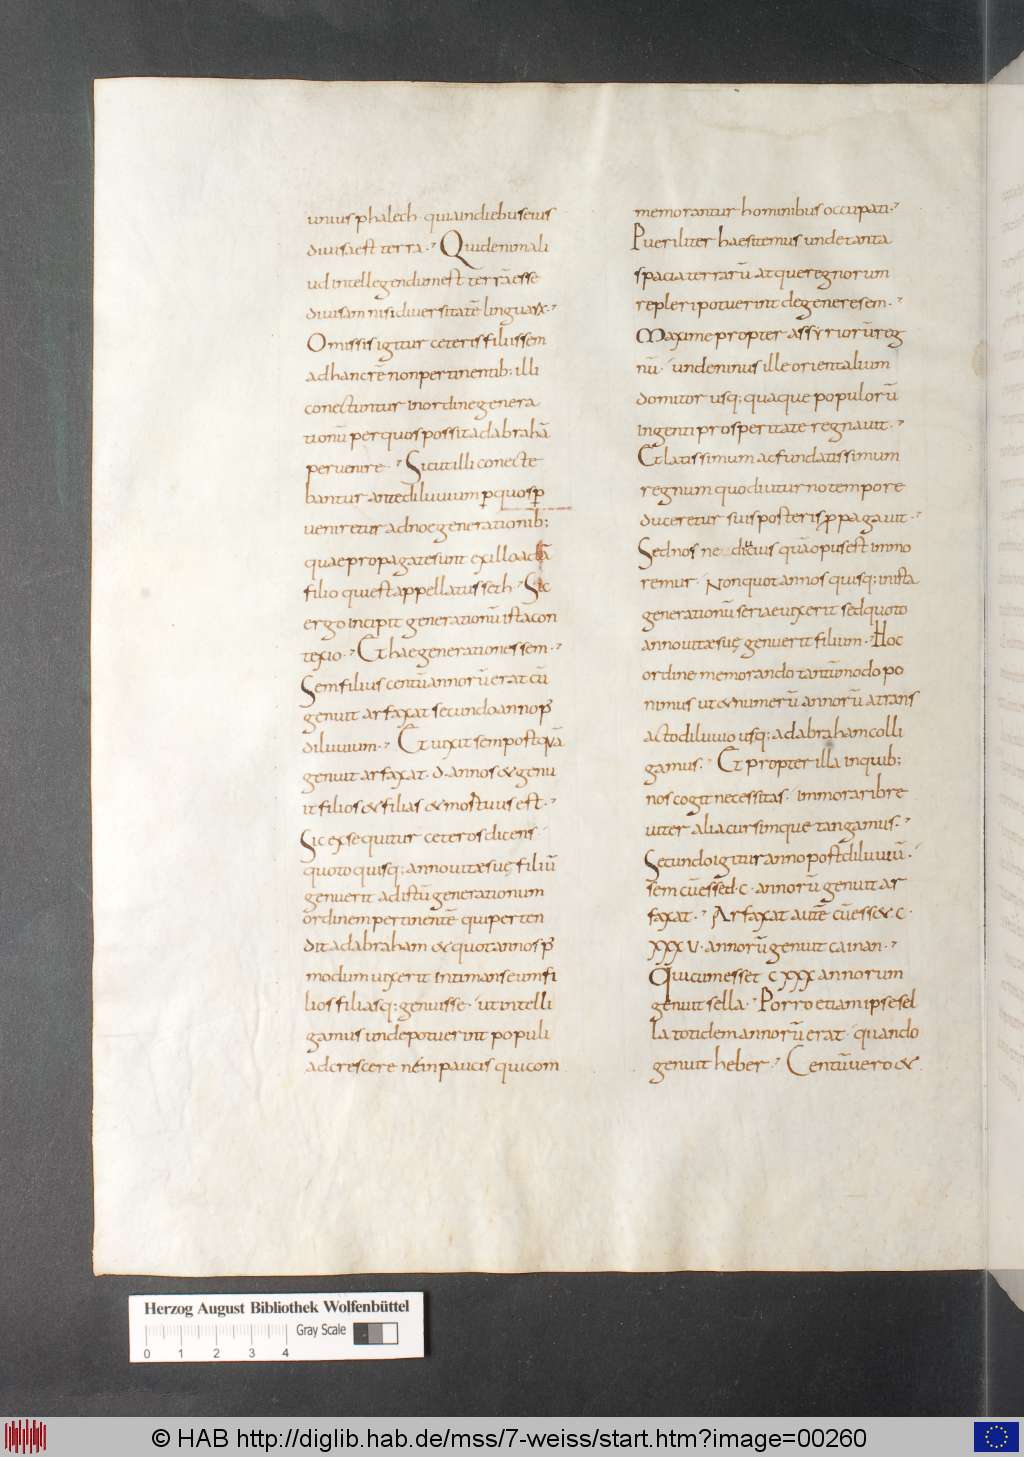 unius phalech· quia in diebus eius
diuisa est terra· Quid enim ali
ud intellegendum est terrā esse
diuisam nisi diuersitatē linguarū·
Omissis igitur ceteris filiis sem
ad hanc rē non pertinentib; illi
conectuntur in ordine genera
tionū per quos possit ad abrahā
peruenire· Sicut illi conecte
bantur ante diluuium p̲ quos p̲
ueniretur ad noe generationib;
quae propagate sunt ex illo adā
filio qui est appellatus seth· Sic
ergo incipit generationū ista con
texio· Et hae generationes sem·
Sem filius centū annorū erat cū
genuit arfaxat secundo anno p̄
diluuium· Et uixit sem postquā
genuit arfaxat· d· annos & genu
it filios & filias & mortuus est·
Sic exsequitur ceteros dicens
quoto quisq; anno uitae suę filiū
genuerit ad istū generationum
ordinem pertinentē qui perten
dit ad abraham & quot annos p̄
modum uixerit intimans eum fi
lios filiasq; genuisse· ut intelli
gamus unde potuerint populi
adcrescere ne in paucis qui com
memorantur hominibus occupati·
Pueriliter haesitemus unde tanta
spacia terrarū atque regnorum
repleri potuerint de genere sem·
Maxime propter assyriorū reg
nū· unde ninus ille orientalium
domitor usq; quaque populorū
ingenti prosperitate regnauit·
Et latissimum ac fundatissimum
regnum quod iuturno tempore
duceretur suis posteris p̲pagauit·
Sed nos ne diutius quā opus est immo
remur· Non quot annos quisq; in ista
generationū seriae uixerit sed quoto
anno uitae suę genuerit filium· Hoc
ordine memorando tantūmodo po
nimus ut & numerū annorū a trans
acto diluuio usq; ad abraham colli
gamus· Et propter illa in quib;
nos cogit necessitas· immorari bre
uiter alia cursimque tangamus·
Secundo igitur anno post diluuiū·
sem cū esset·c· annorū genuit ar
faxat· Arfaxat autē cū ess&·c·
xxxv· annorū genuit cainan·
Qui cum esset cxxx annorum
genuit sella· Porro etiam ipse sel
la totidem annorū erat· quando
genuit heber· Centū uero &
Herzog August Bibliothek Wolfenbüttel
Gray Scale
0 1 2 3 4
© HAB http://diglib.hab.de/mss/7-weiss/start.htm?image=00260